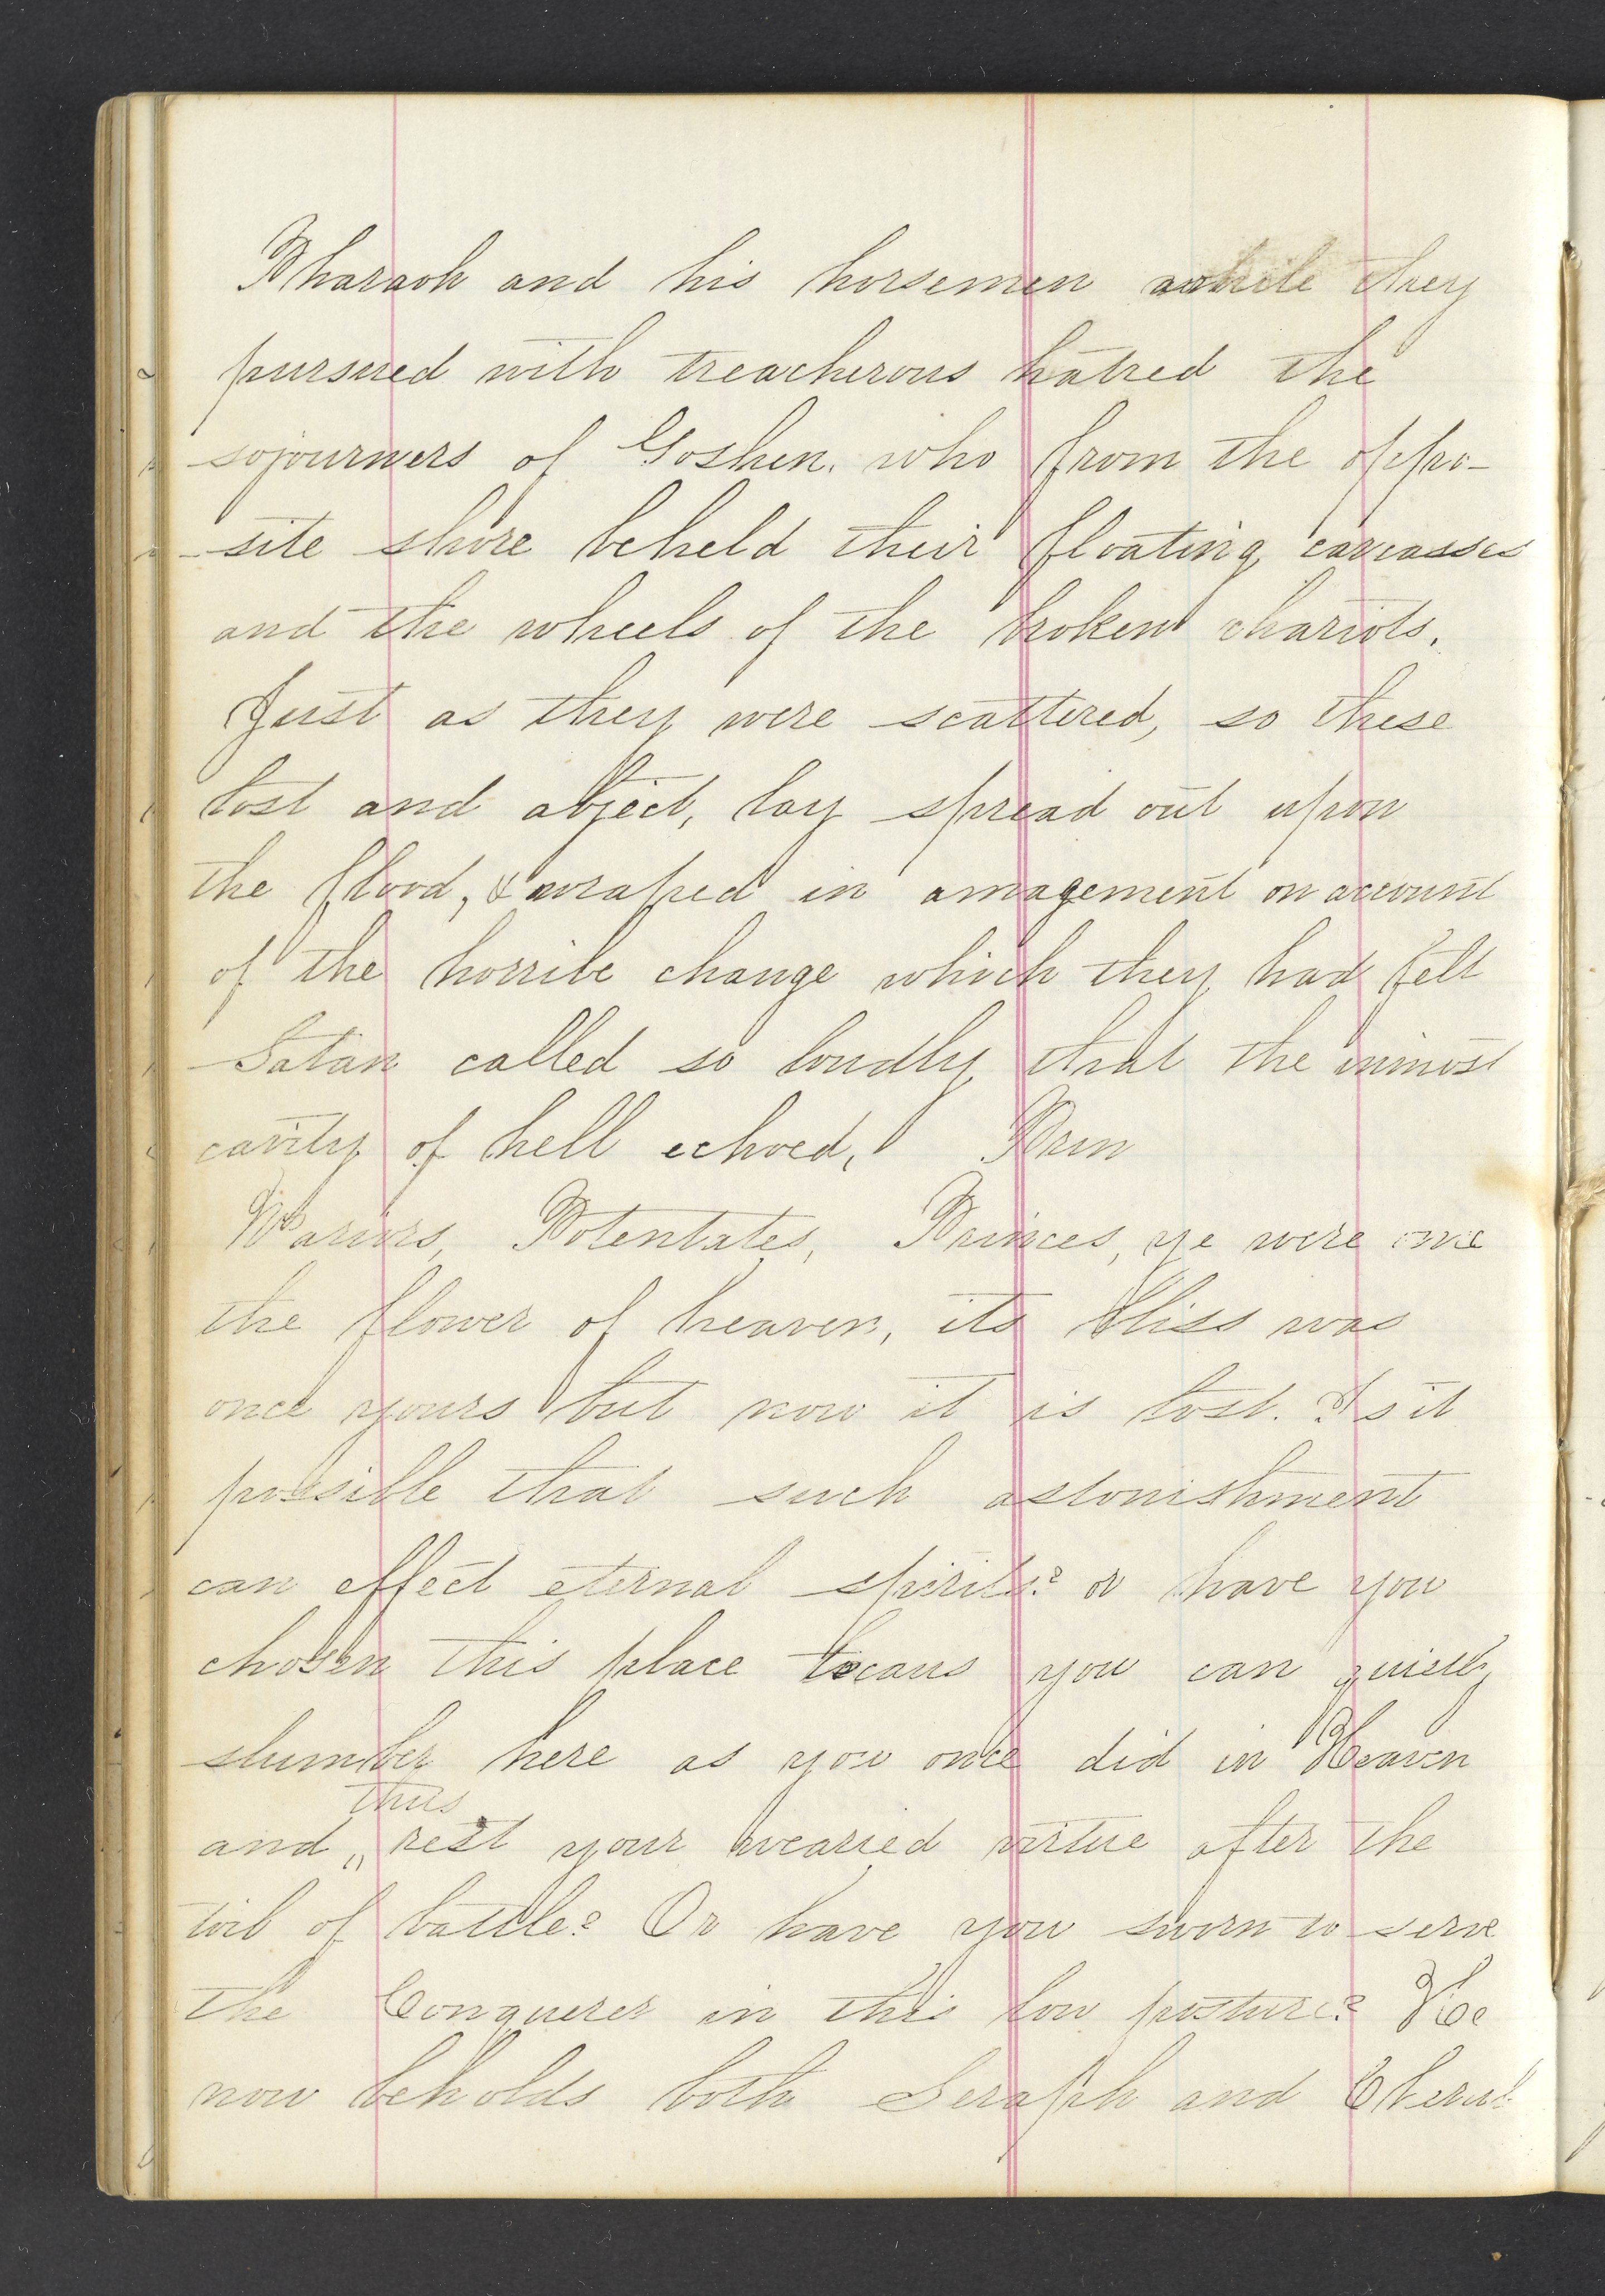 Pharaoh and his horsemen while they
pursued with treacherous hatred the
sojourners of Goshen. who from the oppo-
-site shore beheld their floating carcasses
and the wheels of the broken chariots.
Just as they were scattered, so these
lost and abject, lay spread out upon
the flood, & wraped in amagement on account
of the horrible change which they had felt
Satan called so loudly that the inmost
cavity of hell echoed, Prin
Wariors, Potentates, Princes, ye were once
the flower of heaven, its bliss was
once yours but now it is lost. Is it
possible that such astonishment
can effect eternal spirits? or have you
chosen this place becaus you can quietly
slumber here as you once did in Heaven
thus
and " rest your wearied virtue after the
toil of battle? Or have you sworn to serve
the Conquerer in this low posture? He
now beholds both Seraph and Cherub